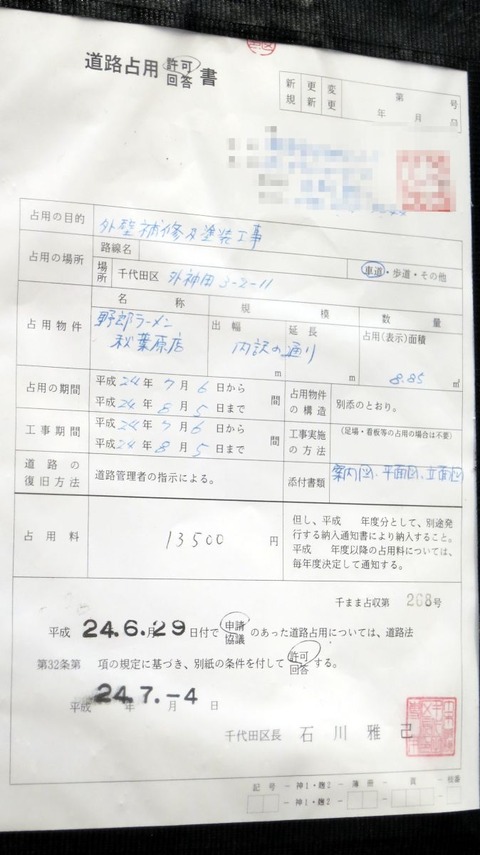 道路占用 許可 回答 書
新規 更新 変更
第 号
年 月 日
占用の目的 外壁補修及塗装工事
占用の場所 路線名
場所 千代田区 外神田 3-2-11 車道・歩道・その他
占用物件 名称 規模 数量
野郎ラーメン 秋葉原店
出幅 延長 占用(表示)面積
内訳の通り
m m 8.85 ㎡
占用の期間 平成24年7月6日から
平成24年8月5日まで 間
占用物件の構造 別添のとおり。
工事期間 平成24年7月6日から
平成24年8月5日まで 間
工事実施の方法 (足場・看板等の占用の場合は不要)
道路の復旧方法 道路管理者の指示による。
添付書類 案内図、平面図、立面図
占用料 13500 円
但し、平成 年度分として、別途発
行する納入通知書により納入すること。
平成 年度以降の占用料については、
毎年度決定して通知する。
千まま占収第 268号
平成 24.6.月29日付で 申請 協議 のあった道路占用については、道路法
第32条第 項の規定に基づき、別紙の条件を付して 許可 回答 する。
平成 24.7.-4 年 月 日
千代田区長 石川雅己
記号 神1・麹2 簿冊 頁 枝番
神1・麹2